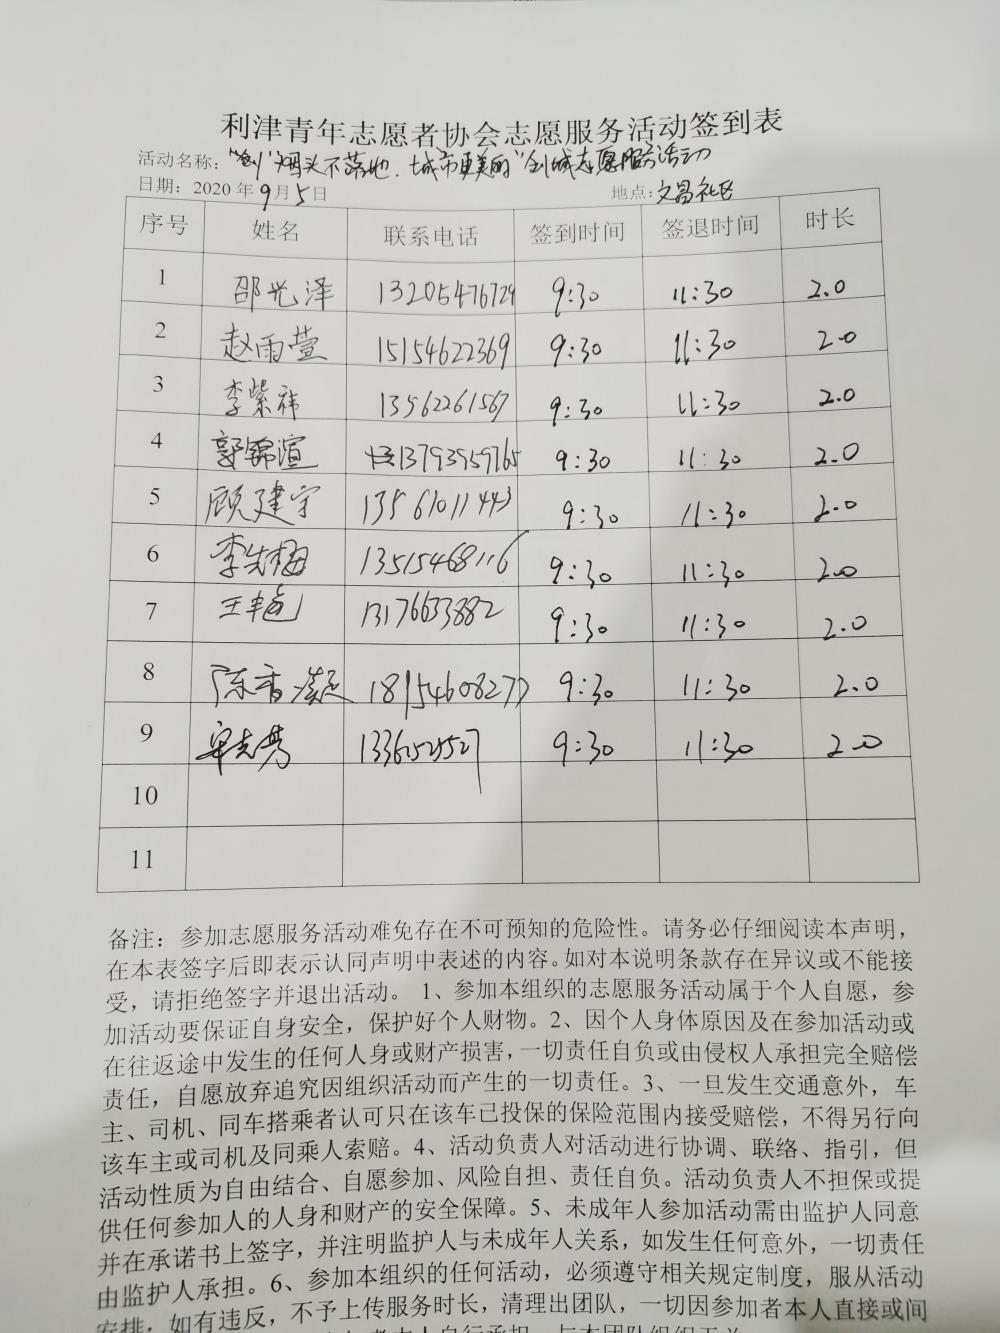 利津青年志愿者协会志愿服务活动签到表
活动名称："创"烟头不落地.城市更美丽"创城志愿服务活动
日期：2020年9月5日 地点：文昌社区
序号 姓名 联系电话 签到时间 签退时间 时长
1 邵光泽 13205476729 9:30 11:30 2.0
2 赵雨萱 15154622369 9:30 11:30 2.0
3 李紫祎 13562261567 9:30 11:30 2.0
4 郭锦渲 13793959765 9:30 11:30 2.0
5 顾建宇 13561011443 9:30 11:30 2.0
6 李先梅 13515468116 9:30 11:30 2.0
7 王 13176633882 9:30 11:30 2.0
8 陈香凝 18954608277 9:30 11:30 2.0
9 9:30 11:30 2.0
10
11
备注：参加志愿服务活动难免存在不可预知的危险性。请务必仔细阅读本声明，
在本表签字后即表示认同声明中表述的内容。如对本说明条款存在异议或不能接
受，请拒绝签字并退出活动。 1、参加本组织的志愿服务活动属于个人自愿，参
加活动要保证自身安全，保护好个人财物。2、因个人身体原因及在参加活动或
在往返途中发生的任何人身或财产损害，一切责任自负或由侵权人承担完全赔偿
责任，自愿放弃追究因组织活动而产生的一切责任。3、一旦发生交通意外，车
主、司机、同车搭乘者认可只在该车已投保的保险范围内接受赔偿，不得另行向
该车主或司机及同乘人索赔。4、活动负责人对活动进行协调、联络、指引，但
活动性质为自由结合、自愿参加、风险自担、责任自负。活动负责人不担保或提
供任何参加人的人身和财产的安全保障。5、未成年人参加活动需由监护人同意
并在承诺书上签字，并注明监护人与未成年人关系，如发生任何意外，一切责任
由监护人承担。6、参加本组织的任何活动，必须遵守相关规定制度，服从活动
安排；如有违反，不予上传服务时长，清理出团队，一切因参加者本人直接或间